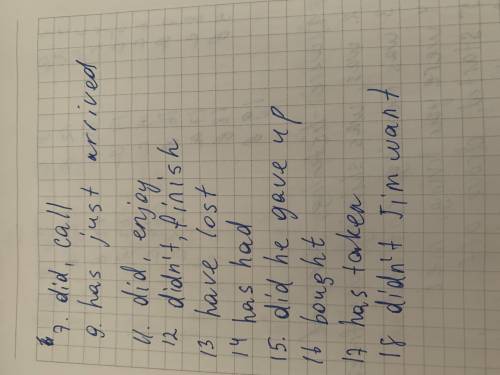 7. did, call
9. has just arrived
11. did, enjoy
12 didn't, finish
13 have lost
14 has had
15. did he gave up
16 bought
17 has taken
18 didn't Jim want